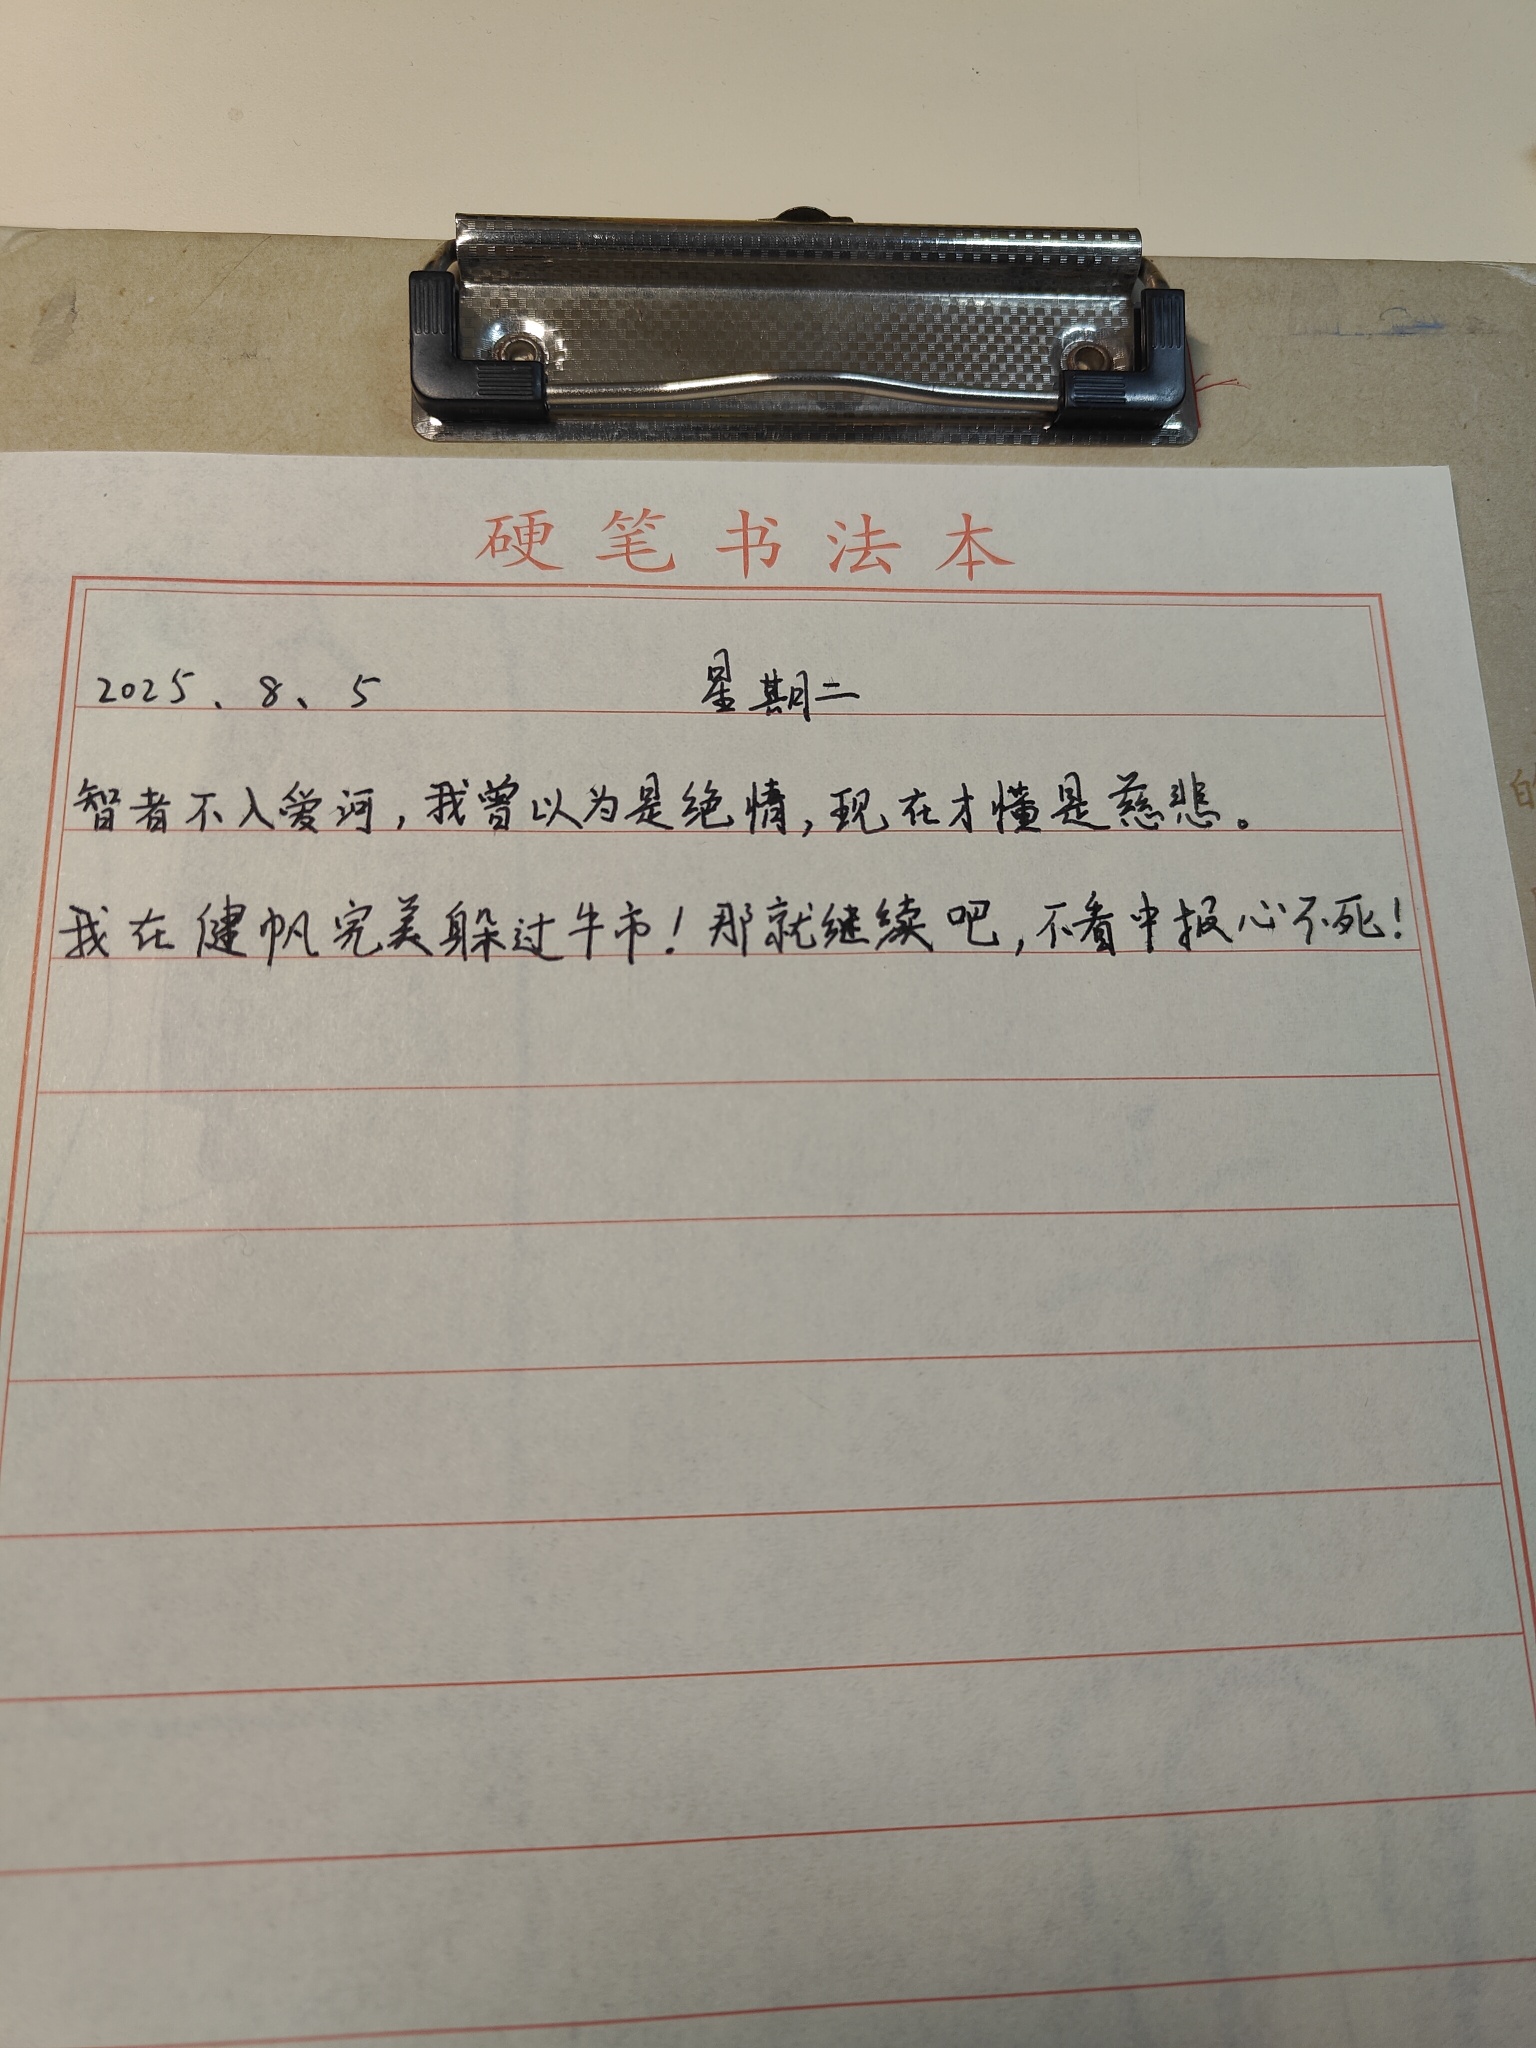 硬笔书法本
2025、8、5 星期二
智者不入爱河,我曾以为是绝情,现在才懂是慈悲。
我在健帆完美躲过牛市!那就继续吧,不看中报心不死!
的